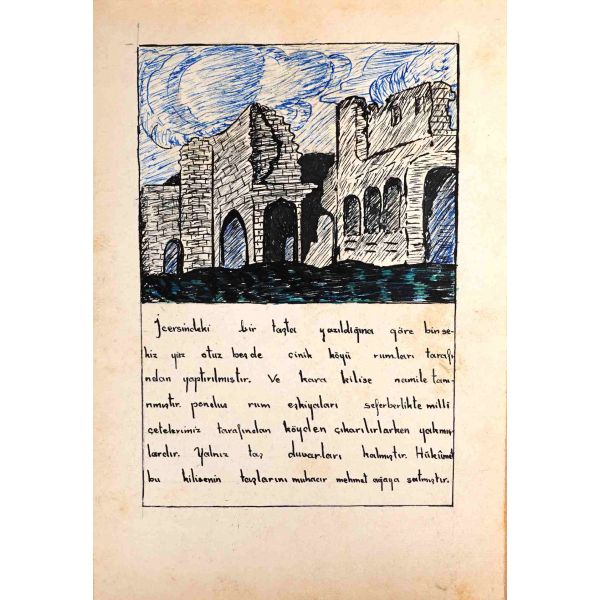 İcersindeki bir taşta yazıldığına göre bin se-
kiz yüz otuz beşde çinik köyü rumları tarafı
ndan yaptırılmıştır. Ve kara kilise namile tanı-
nmıştır. pondus rum eşkiyaları seferberlikte milli
çetelerimiz tarafından köyden çıkarılırlarken yakmış
lardır. Yalnız taş duvarları kalmıştır. Hükümet
bu kilisenin taşlarını muhacır mehmet ağaya satmıştır.